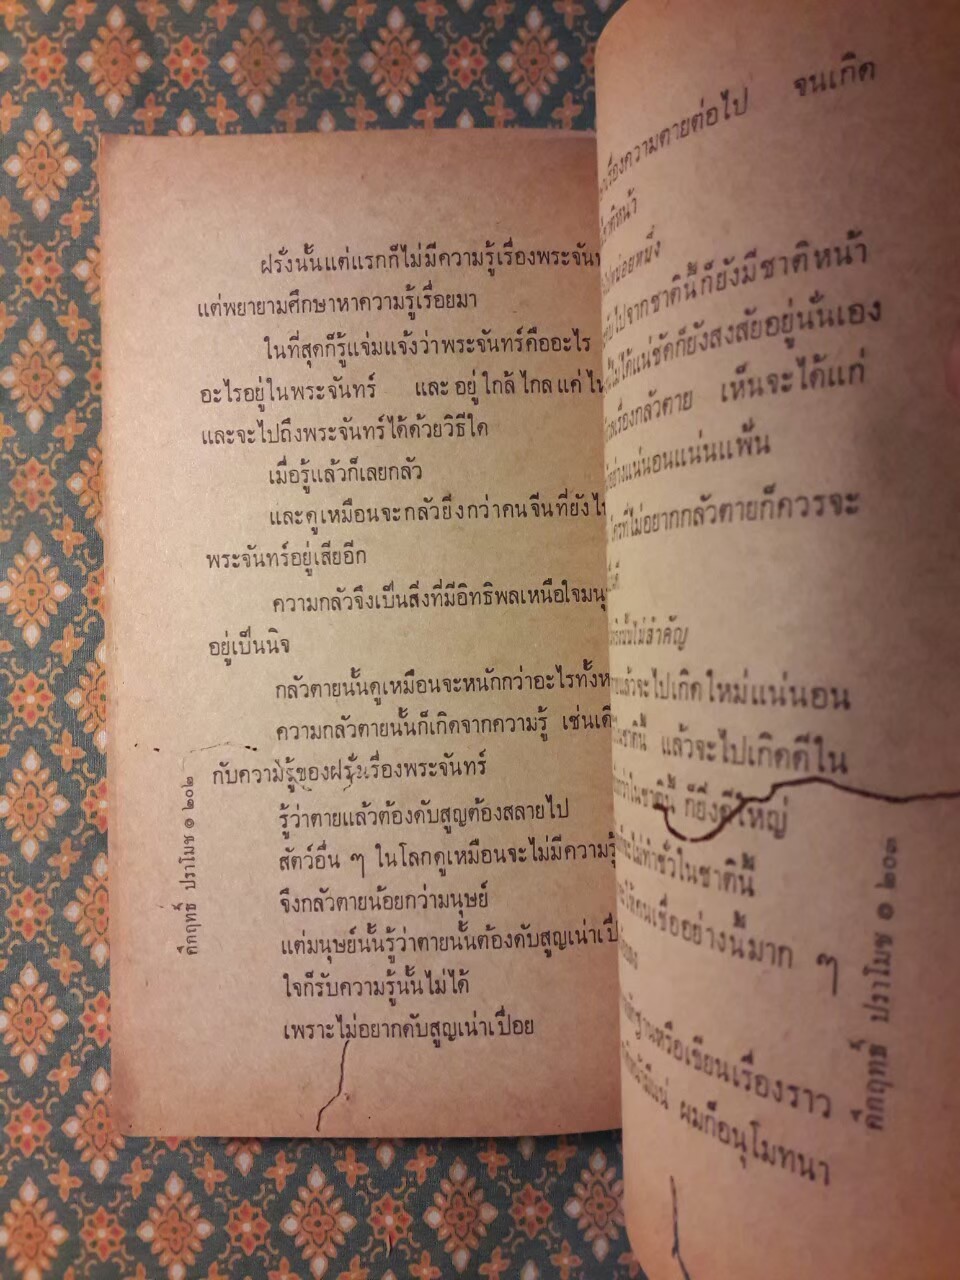 ฝรั่งนั้นแต่แรกก็ไม่มีความรู้เรื่องพระจัน
แต่พยายามศึกษาหาความรู้เรื่อยมา
ในที่สุดก็รู้แจ่มแจ้งว่าพระจันทร์คืออะไร
อะไรอยู่ในพระจันทร์ และ อยู่ ใกล้ ไกล แค่
และจะไปถึงพระจันทร์ได้ด้วยวิธีใด
เมื่อรู้แล้วก็เลยกลัว
และดูเหมือนจะกลัวยิ่งกว่าคนจีนที่ยัง
พระจันทร์อยู่เสียอีก
ความกลัวจึงเป็นสิ่งที่มีอิทธิพลเหนือใจ
อยู่เป็นนิจ
กลัวตายนั้นดูเหมือนจะหนักกว่าอะไร
ความกลัวตายนั้นก็เกิดจากความรู้ เช่น
กับความรู้ของฝรั่งเรื่องพระจันทร์
รู้ว่าตายแล้วต้องดับสูญต้องสลายไป
สัตว์อื่น ๆ ในโลกดูเหมือนจะไม่มีความรู้
จึงกลัวตายน้อยกว่ามนุษย์
แต่มนุษย์นั้นรู้ว่าตายนั้นต้องดับสูญเน่า
ใจก็รับความรู้นั้นไม่ได้
เพราะไม่อยากดับสูญเน่าเปื่อย
คึกฤทธิ์ ปราโมช ๑ ๒๐๒
เรื่องความตายต่อไป จนเกิด
ชาติหน้า
น้อยหนึ่ง
ไปจากชาตินี้ก็ยังมีชาติหน้า
ไม่ได้แน่ชัดก็ยังสงสัยอยู่นั่นเอง
เรื่องกลัวตาย เห็นจะได้แก่
อย่างแน่นอนแน่นแฟ้น
ใครที่ไม่อยากกลัวตายก็ควรจะ
นั้นไม่สำคัญ
แล้วจะไปเกิดใหม่แน่นอน
ในชาตินี้ แล้วจะไปเกิดดีใน
กว่าในชาตินี้ ก็ยิ่งดีใหญ่
จะไม่ทำชั่วในชาตินี้
ให้คนเชื่ออย่างนี้มาก ๆ
หรือเขียนเรื่องราว
ผมก็อนุโมทนา
คึกฤทธิ์ ปราโมช ๑ ๒๐๓